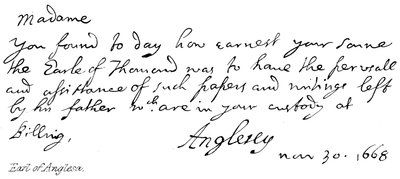 Madame
You found to day how earnest your Sonne
the Earle of Thomond was to haue the perusall
and assistance of such papers and writings left
by his father wch. are in your custody at
Billing,
Anglesey
nov 30. 1668
Earl of Anglesa.